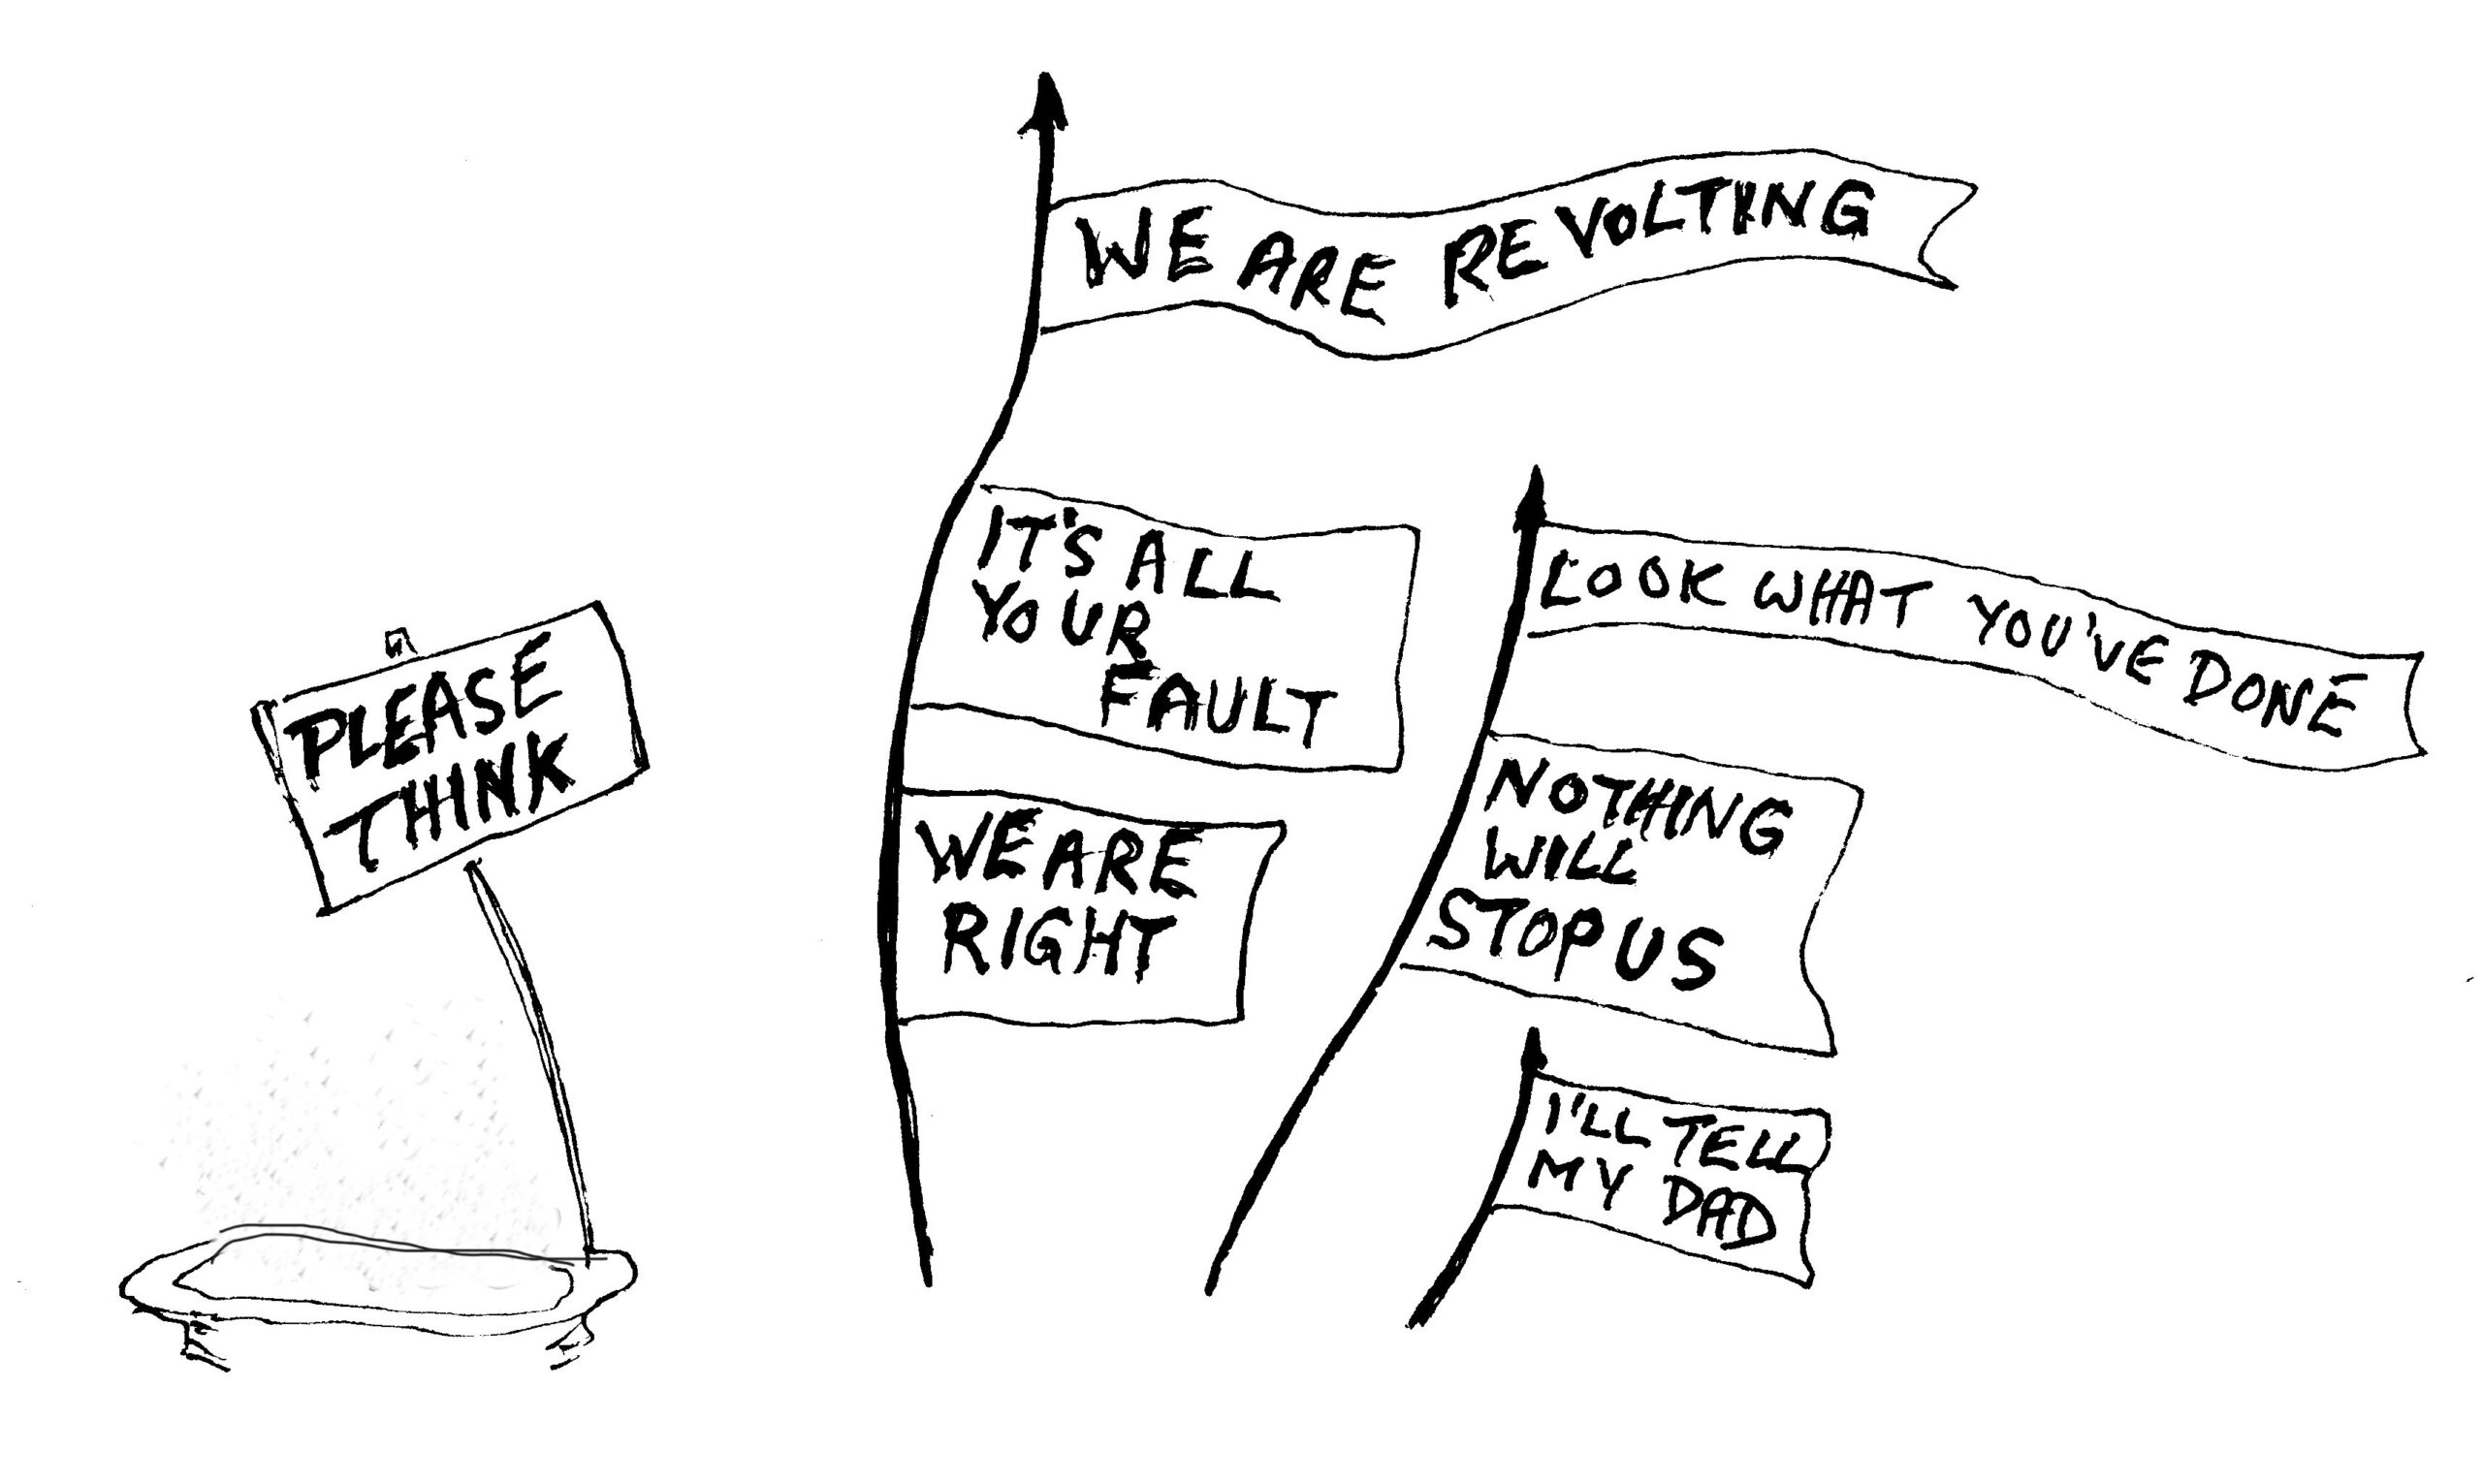 WE ARE REVOLTING
IT'S ALL
YOUR
FAULT
WE ARE
RIGHT
LOOK WHAT YOU'VE DONE
NOTHING
WILL
STOP US
I'LL TELL
MY DAD
PLEASE
THINK